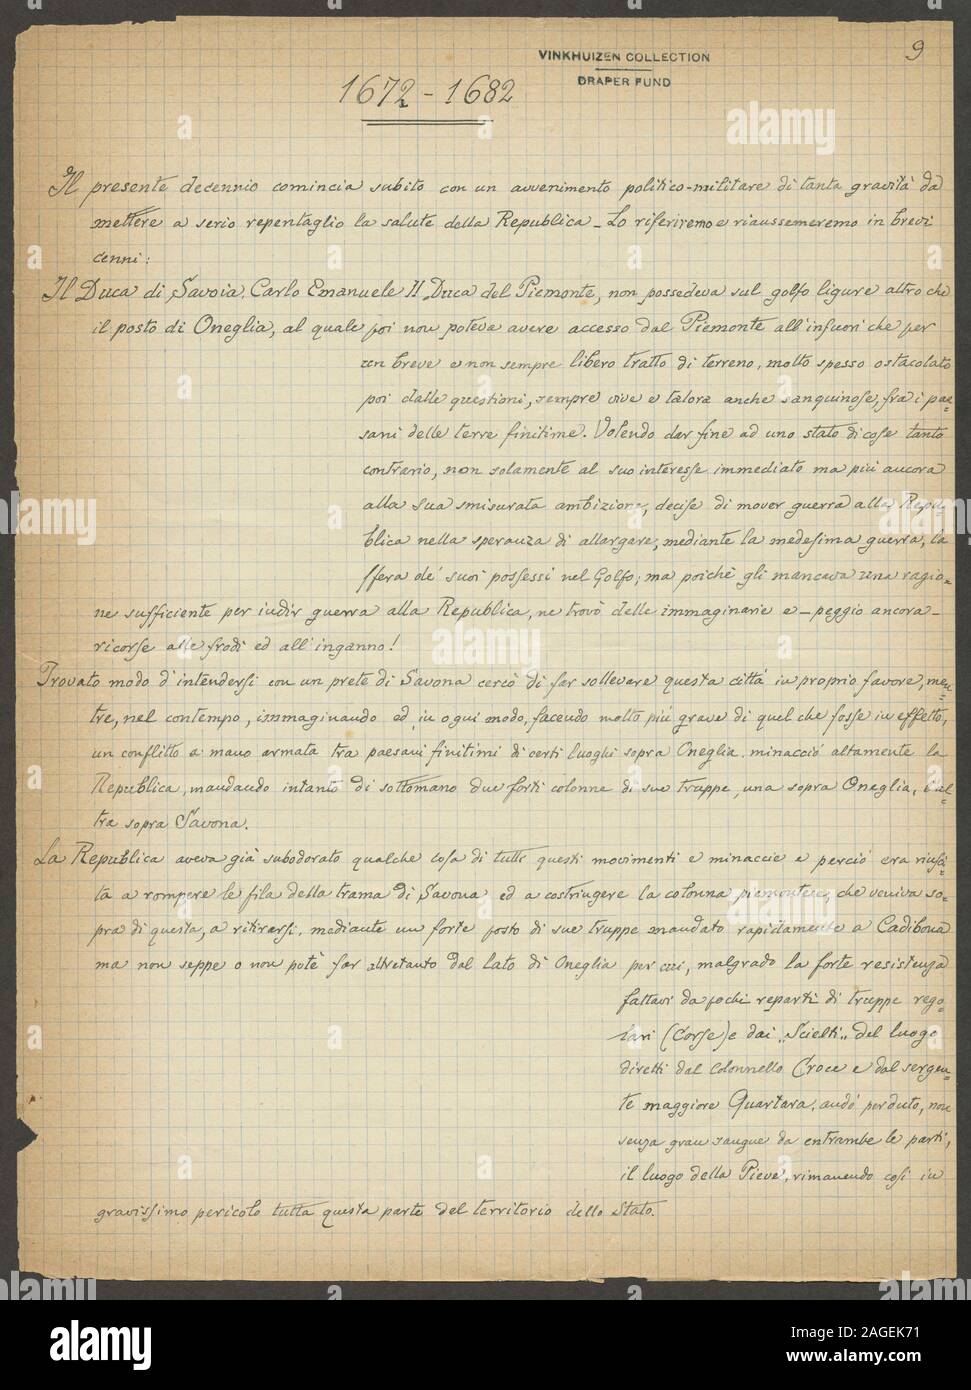 9
VINKHUIZEN COLLECTION
DRAPER FUND
1672 - 1682
Il presente decennio comincia subito con un avvenimento politico-militare di tanta gravità da
mettere a serio repentaglio la salute della Repubblica - Lo riferiremo e riaussemeremo in brevi
cenni:
Il Duca di Savoia, Carlo Emanuele II Duca del Piemonte, non possedeva sul golfo ligure altro che
il posto di Oneglia, al quale poi non poteva avere accesso dal Piemonte all'infuori che per
un breve e non sempre libero tratto di terreno, molto spesso ostacolato
poi dalle questioni, sempre vive e talora anche sanguinose, fra i pae=
sani delle terre finitime. Volendo dar fine ad uno stato di cose tanto
contrario, non solamente al suo interesse immediato ma più ancora
alla sua smisurata ambizione, decise di mover guerra alla Repu=
blica nella speranza di allargare, mediante la medesima guerra, la
sfera de' suoi possessi nel Golfo; ma poichè gli mancava una ragio=
ne sufficiente per indir guerra alla Republica, ne trovò delle immaginarie e - peggio ancora -
ricorse alle frodi ed all'inganno!
Trovato modo d'intendersi con un prete di Savona cercò di far sollevare questa città in proprio favore, men=
tre, nel contempo, immaginando od, in ogni modo, facendo molto più grave di quel che fosse in effetto,
un conflitto a mano armata tra paesani finitimi di certi luoghi sopra Oneglia, minacciò altamente la
Republica, mandando intanto di sottomano due forti colonne di sue truppe, una sopra Oneglia, l'al=
tra sopra Savona.
La Republica aveva già subodorato qualche cosa di tutti questi movimenti e minaccie e perciò era riusci=
ta a rompere le fila della trama di Savona ed a costringere la colonna piemontese, che veniva so=
pra di questa, a ritirarsi, mediante un forte posto di sue truppe mandato rapidamente a Cadibona
ma non seppe o non potè far altretanto dal lato di Oneglia per cui, malgrado la forte resistenza
fattavi da pochi reparti di truppe rego=
lari (Corse) e dai „Scielti„ del luogo
diretti dal Colonnello Croce e dal sergen=
te maggiore Quartara, andò perduto, non
senza gran sangue da entrambe le parti,
il luogo della Pieve, rimanendo così in
gravissimo pericolo tutta questa parte del territorio dello Stato.
alamy
alamy
alamy
alamy
alamy
Image ID: 2AGEK71
www.alamy.com